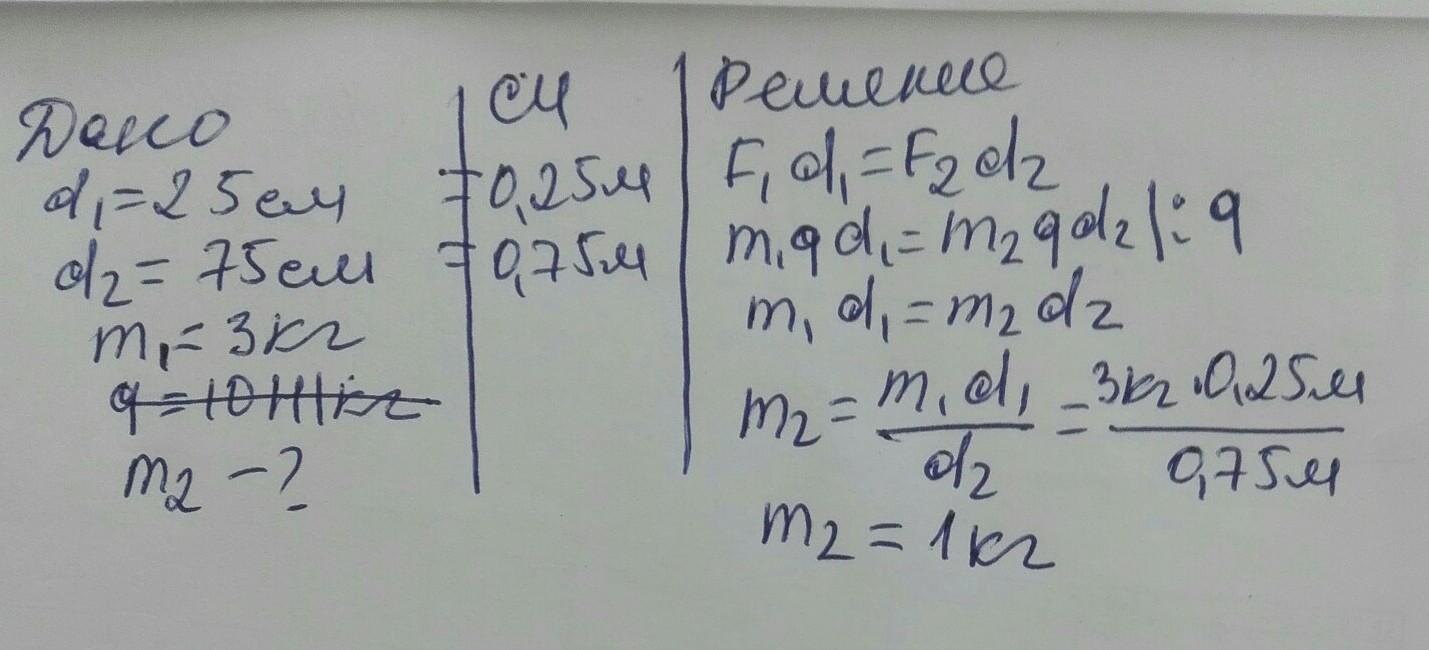 Дано
d₁ = 25 см
d₂ = 75 см
m₁ = 3 кг
g = 10 Н/кг
m₂ - ?
СИ
= 0,25 м
= 0,75 м
Решение
F₁ d₁ = F₂ d₂
m₁ g d₁ = m₂ g d₂ | : g
m₁ d₁ = m₂ d₂
m₂ = m₁ d₁ / d₂ = 3 кг · 0,25 м / 0,75 м
m₂ = 1 кг